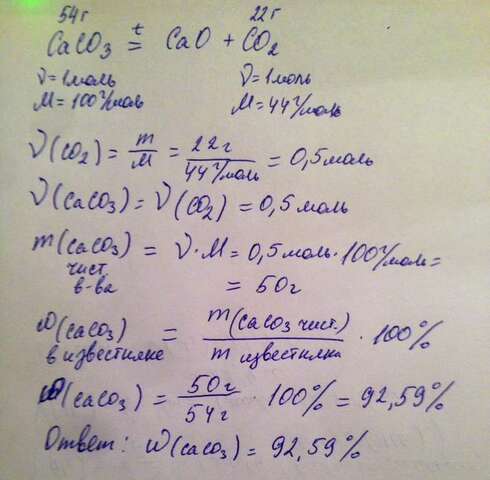 54г 22г
CaCO₃ =ᵗ CaO + CO₂
ν=1моль ν=1моль
M=100г/моль M=44г/моль
ν(CO₂) = m/M = 22г/44г/моль = 0,5моль
ν(CaCO₃) = ν(CO₂) = 0,5моль
m(CaCO₃) = ν·M = 0,5моль·100г/моль=
чист.
в-ва = 50г
ω(CaCO₃) = m(CaCO₃ чист.)/m известняка · 100%
в известняке
ω(CaCO₃) = 50г/54г · 100% = 92,59%
Ответ: ω(CaCO₃) = 92,59%